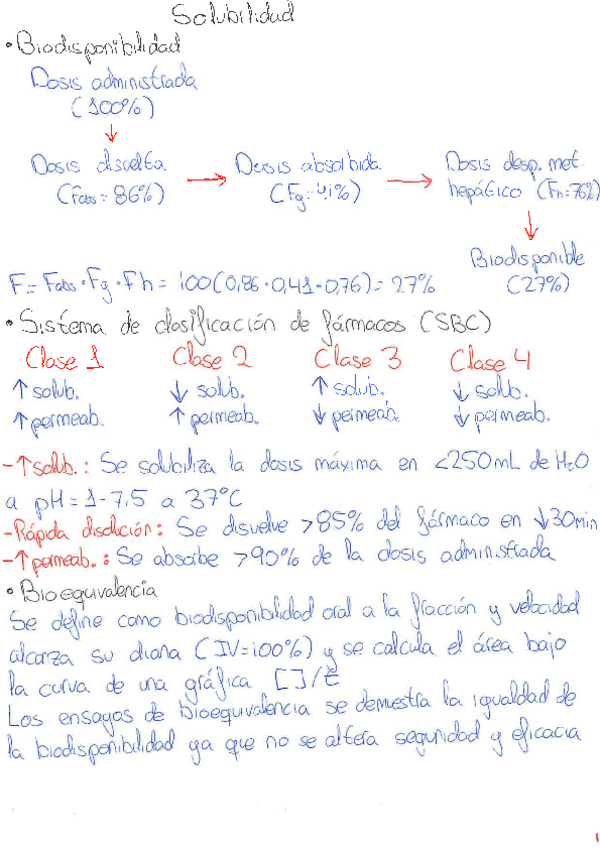 Solubilidad
• Biodisponibilidad
Dosis administrada
(100%)
↓
Dosis disuelta → Dosis absorbida → Dosis desp. met.
(Fabs = 86%) (Fg = 41%) hepático (Fh = 76%)
↓
Biodisponible
(27%)
F = Fabs · Fg · Fh = 100(0,86 · 0,41 · 0,76) = 27%
• Sistema de clasificación de fármacos (SBC)
Clase 1 Clase 2 Clase 3 Clase 4
↑ solub. ↓ solub. ↑ solub. ↓ solub.
↑ permeab. ↑ permeab. ↓ permeab. ↓ permeab.
- ↑ solub.: Se solubiliza la dosis máxima en <250mL de H2O
a pH = 1-7,5 a 37°C
- Rápida disolución: Se disuelve >85% del fármaco en ↓30min
- ↑ permeab.: Se absorbe >90% de la dosis administrada
• Bioequivalencia
Se define como biodisponibilidad oral a la fracción y velocidad
alcanza su diana (IV = 100%) y se calcula el área bajo
la curva de una gráfica [ ]/t
Los ensayos de bioequivalencia se demuestra la igualdad de
la biodisponibilidad ya que no se altera seguridad y eficacia
1